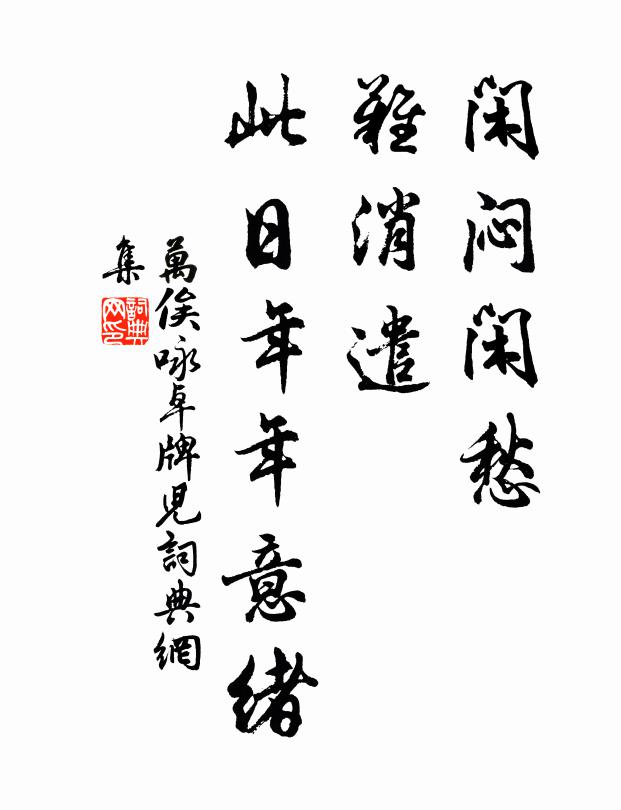 闲闷闲愁
難消遣
此日年年意緒
萬俟咏卓牌兒詞典網
集
詞典
网印